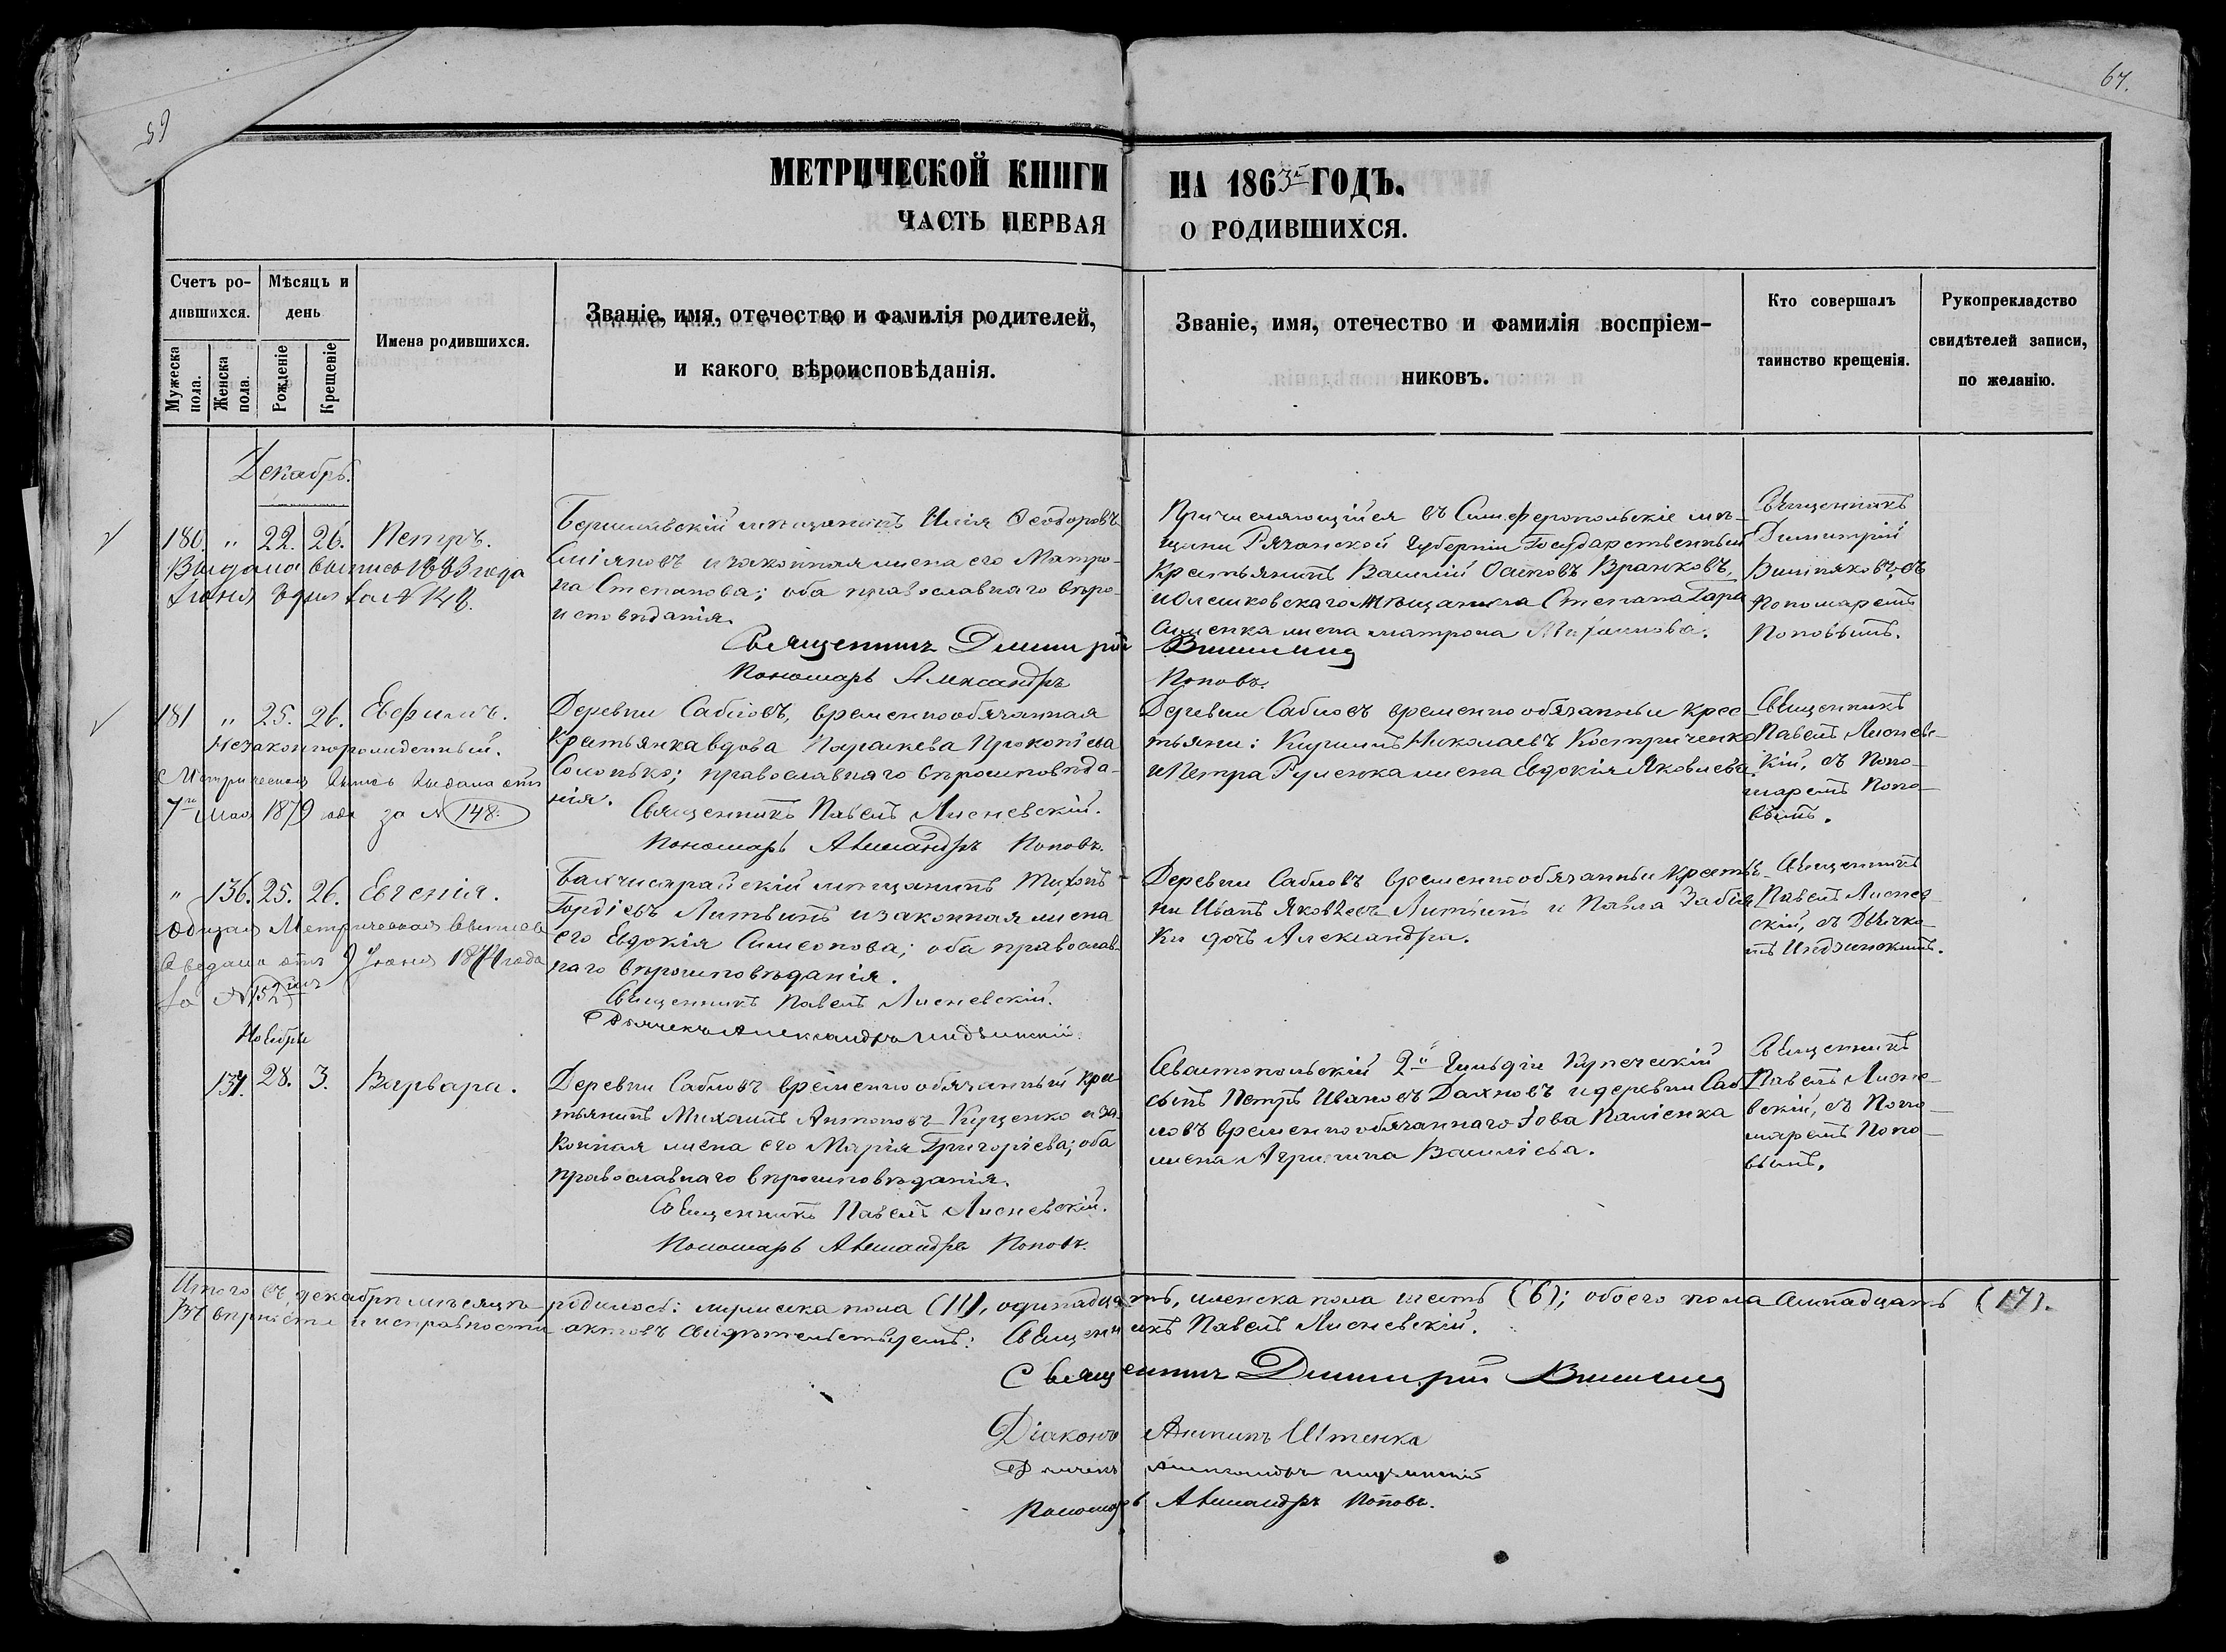 59
67.
МЕТРИЧЕСКОЙ КНИГИ
НА 1863й ГОДЪ.
ЧАСТЬ ПЕРВАЯ
О РОДИВШИХСЯ.
Счетъ ро-
дившихся.
Мужеска
пола.
Женска
пола.
Мѣсяцъ и
день
Рожденіе
Крещеніе
Имена родившихся.
Званіе, имя, отечество и фамилія родителей,
и какого вѣроисповѣданія.
Званіе, имя, отечество и фамилія воспріем-
никовъ.
Кто совершалъ
таинство крещенія.
Рукоприкладство
свидѣтелей записи,
по желанію.
Декабрь.
180. " 22. 26. Петръ.
Выдана выпись 1883 года
Июня за № 148.
мѣщанинъ Илія Ѳеодоровъ
и законная жена его Матро-
на Степанова; оба православнаго вѣро-
исповѣданія.
Священникъ Димитрій
Пономарь Александръ Поповъ.
Причисляющійся въ Симферопольскіе мѣ-
щани Рязанской Губерніи Государственный
Крестьянинъ Василій Осиповъ Вранковъ,
и Олешковскаго Мѣщанина Степана Гара
сименка жена матрона
Священникъ
Димитрій
съ
Пономаремъ
Поповымъ.
181 " 25. 26. Евфимъ.
Незаконнорожденный.
Метрическая выпись выдана отъ
7го Мая 1879 года за № 148.
Деревни Сабловъ, временнообязанная
Крестьянка вдова Параскева Прокопіева
православнаго вѣроисповѣда-
нія.
Священникъ Павелъ Лисневскій.
Пономарь Александръ Поповъ.
Деревни Сабловъ временнообязанные крес-
тьяни: Кириллъ Николаевъ Костриченко
и Петра Руленка жена Евдокія Яковлева.
Священникъ
Павелъ Лиснев-
кій, съ Поно-
маремъ Попо-
вымъ.
" 136. 25. 26. Евгенія.
Метрическая выпись
отъ 9 Июня 1874 года
за № 152
Бахчисарайскій мѣщанинъ Тихонъ
Гордіевъ Литвинъ и законная жена
его Евдокія Симеонова; оба православ-
наго вѣроисповѣданія.
Священникъ Павелъ Лисневскій.
Дьячекъ Александръ
Деревни Сабловъ временнообязанные крестья-
ни Иванъ Яковлевъ Литвинъ и Павла
ки дочь Александра.
Священникъ
Павелъ Лиснев-
скій, съ Дьячко-
мъ
Ноября
137. 28. 3. Варвара.
Деревни Сабловъ временнообязанный крес-
тьянинъ Михаилъ Антоновъ Куценко и за-
конная жена его Марія Григоріева; оба
православнаго вѣроисповѣданія.
Священникъ Павелъ Лисневскій.
Пономарь Александръ Поповъ.
Севастопольскій 2й Гильдіи Купеческій
сынъ Петръ Ивановъ Дахновъ и деревни Саб-
ловъ временнообязаннаго Іова Паліенка
жена Агрипина Василіева.
Священникъ
Павелъ Лисне-
вскій, съ Поно-
маремъ Попо-
вымъ.
Итого въ декабрѣ мѣсяцѣ родилось: мужеска пола (11), одинадцать, женска пола шесть (6); обоего пола семнадцать (17).
Въ вѣрности и исправности актовъ свидѣтельствуемъ: Священникъ Павелъ Лисневскій.
Священникъ Димитрій
Діаконъ Антипъ Штенка
Дьячекъ Александръ
Пономарь Александръ Поповъ.